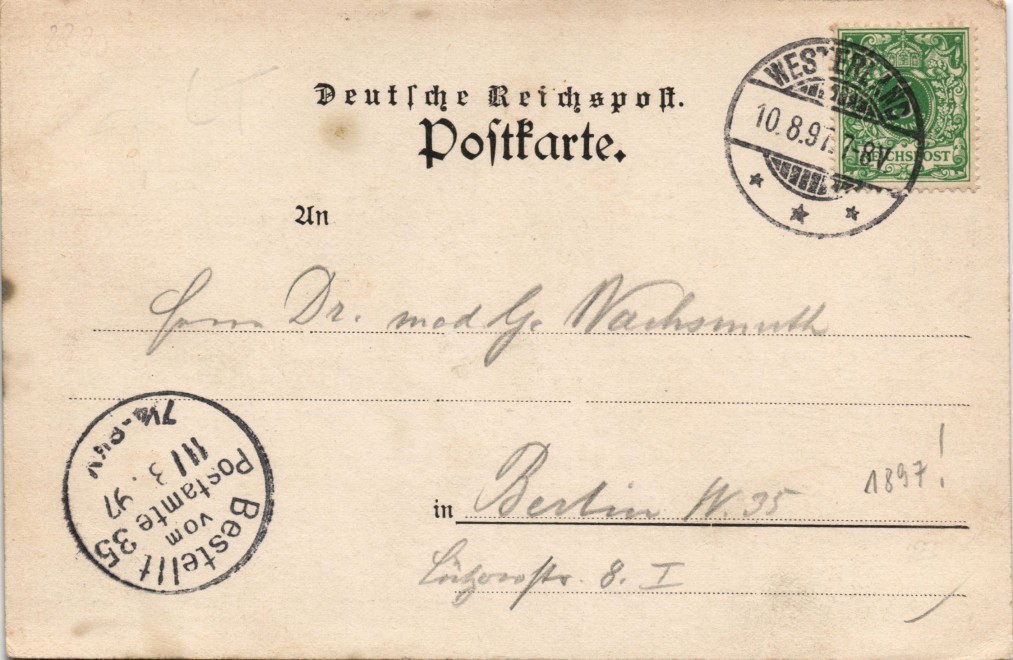 Deutsche Reichspost.
Postkarte.
WESTERLAND
10.8.97. 7-8V
REICHSPOST
An
Herrn Dr. med G. Wachsmuth
in Berlin W. 35
1897!
Lützowstr. 8. I
Bestellt
vom
Postamte 35
97